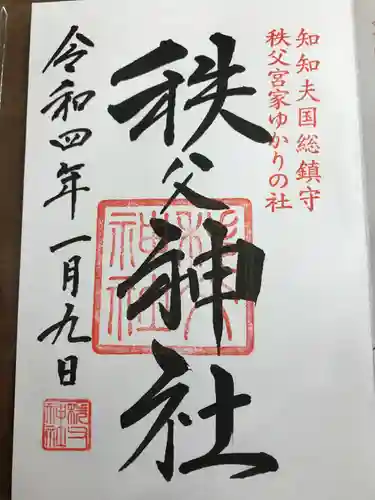 知知夫国総鎮守
秩父宮家ゆかりの社
秩父神社
令和四年一月九日
秩父神社
秩父神社